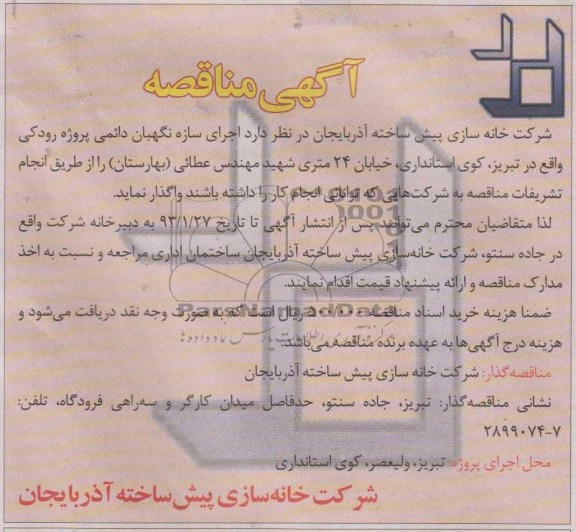 آگهی مناقصه
شرکت خانه سازی پیش ساخته آذربایجان در نظر دارد اجرای سازه نگهبان دائمی پروژه رودکی
واقع در تبریز، کوی استانداری، خیابان ۲۴ متری شهید مهندس عطائی (بهارستان) را از طریق انجام
تشریفات مناقصه به شرکت‌هایی که توانائی انجام کار را داشته باشند واگذار نماید.
لذا متقاضیان محترم می‌توانند پس از انتشار آگهی تا تاریخ ۹۳/۱/۲۷ به دبیرخانه شرکت واقع
در جاده سنتو، شرکت خانه‌سازی پیش ساخته آذربایجان ساختمان اداری مراجعه و نسبت به اخذ
مدارک مناقصه و ارائه پیشنهاد قیمت اقدام نمایند.
ضمنا هزینه خرید اسناد مناقصه ریال است که به صورت وجه نقد دریافت می‌شود و
هزینه درج آگهی‌ها به عهده برنده مناقصه می‌باشد.
مناقصه‌گذار: شرکت خانه سازی پیش ساخته آذربایجان
نشانی مناقصه‌گذار: تبریز، جاده سنتو، حدفاصل میدان کارگر و سه‌راهی فرودگاه، تلفن:
۲۸۹۹۰۷۴-۷
محل اجرای پروژه: تبریز، ولیعصر، کوی استانداری
شرکت خانه‌سازی پیش‌ساخته آذربایجان
ParsNamadData